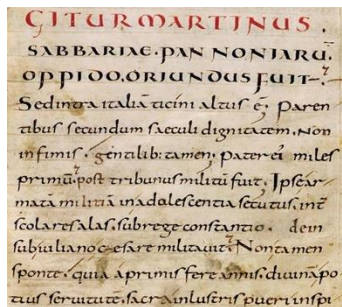 GITUR MARTINUS.
SABBARIAE. PANNONIARŪ.
OPPIDO, ORIUNDUS FUIT
Sed intra italiā ticini altus ē; paren
tibus secundum saeculi dignitatem, non
infimis, gentilib: tamen; pater ei miles
primū, post tribunus militū fuit. Ipse ar
matā militiā in adolescentia secutus, int
scolares alas, sub rege constantio. dein
sub iuliano cesare militavit; Non tamen
sponte, quia a primis fere annis, divinā po
tius servitutē, sacra inlustris pueri inspi